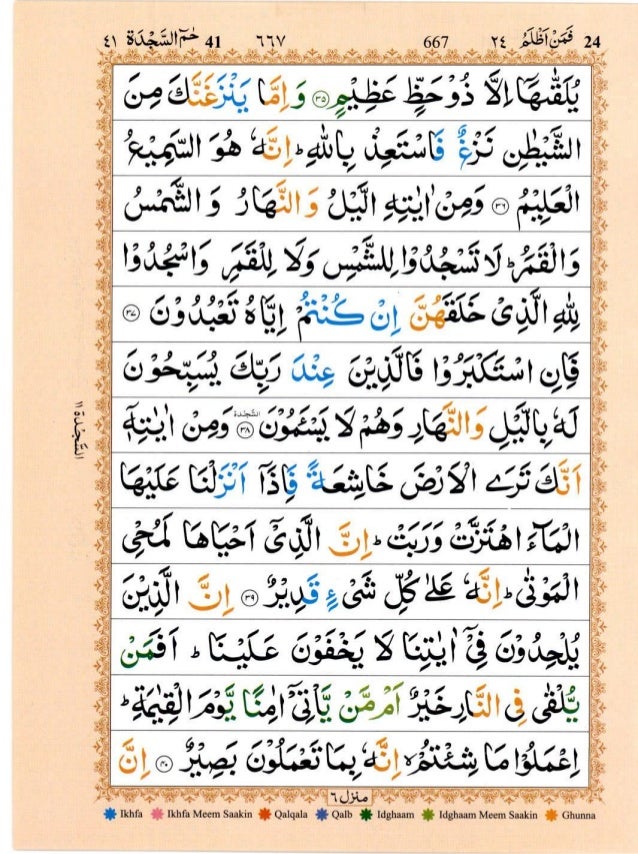 24 فَمَنْ اَظْلَمُ ٢٤ 667 ٦٦٧ 41 حٰمٓ السَّجْدَة ٤١
يُلَقّٰىهَاۤ اِلَّا ذُوْ حَظٍّ عَظِيْمٍ ٣٥ وَاِمَّا يَنْزَغَنَّكَ مِنَ
الشَّيْطٰنِ نَزْغٌ فَاسْتَعِذْ بِاللّٰهِ ؕ اِنَّهٗ هُوَ السَّمِيْعُ
الْعَلِيْمُ ٣٦ وَمِنْ اٰيٰتِهِ الَّيْلُ وَالنَّهَارُ وَالشَّمْسُ
وَالْقَمَرُ ؕ لَا تَسْجُدُوْا لِلشَّمْسِ وَلَا لِلْقَمَرِ وَاسْجُدُوْا
لِلّٰهِ الَّذِىْ خَلَقَهُنَّ اِنْ كُنْتُمْ اِيَّاهُ تَعْبُدُوْنَ ٣٧
فَاِنِ اسْتَكْبَرُوْا فَالَّذِيْنَ عِنْدَ رَبِّكَ يُسَبِّحُوْنَ
لَهٗ بِالَّيْلِ وَالنَّهَارِ وَهُمْ لَا يَسْئَمُوْنَ السَّجْدَة ٣٨ وَمِنْ اٰيٰتِهٖۤ
اَنَّكَ تَرَى الْاَرْضَ خَاشِعَةً فَاِذَاۤ اَنْزَلْنَا عَلَيْهَا
الْمَآءَ اهْتَزَّتْ وَرَبَتْ ؕ اِنَّ الَّذِىْۤ اَحْيَاهَا لَمُحْىِ
الْمَوْتٰى ؕ اِنَّهٗ عَلٰى كُلِّ شَىْءٍ قَدِيْرٌ ٣٩ اِنَّ الَّذِيْنَ
يُلْحِدُوْنَ فِىْۤ اٰيٰتِنَا لَا يَخْفَوْنَ عَلَيْنَا ؕ اَفَمَنْ
يُّلْقٰى فِى النَّارِ خَيْرٌ اَمْ مَّنْ يَّاْتِىْۤ اٰمِنًا يَّوْمَ الْقِيٰمَةِ ؕ
اِعْمَلُوْا مَا شِئْتُمْ ۙ اِنَّهٗ بِمَا تَعْمَلُوْنَ بَصِيْرٌ ٤٠ اِنَّ
السَّجْدَة ١١
منزل ٦
Ikhfa Ikhfa Meem Saakin Qalqala Qalb Idghaam Idghaam Meem Saakin Ghunna